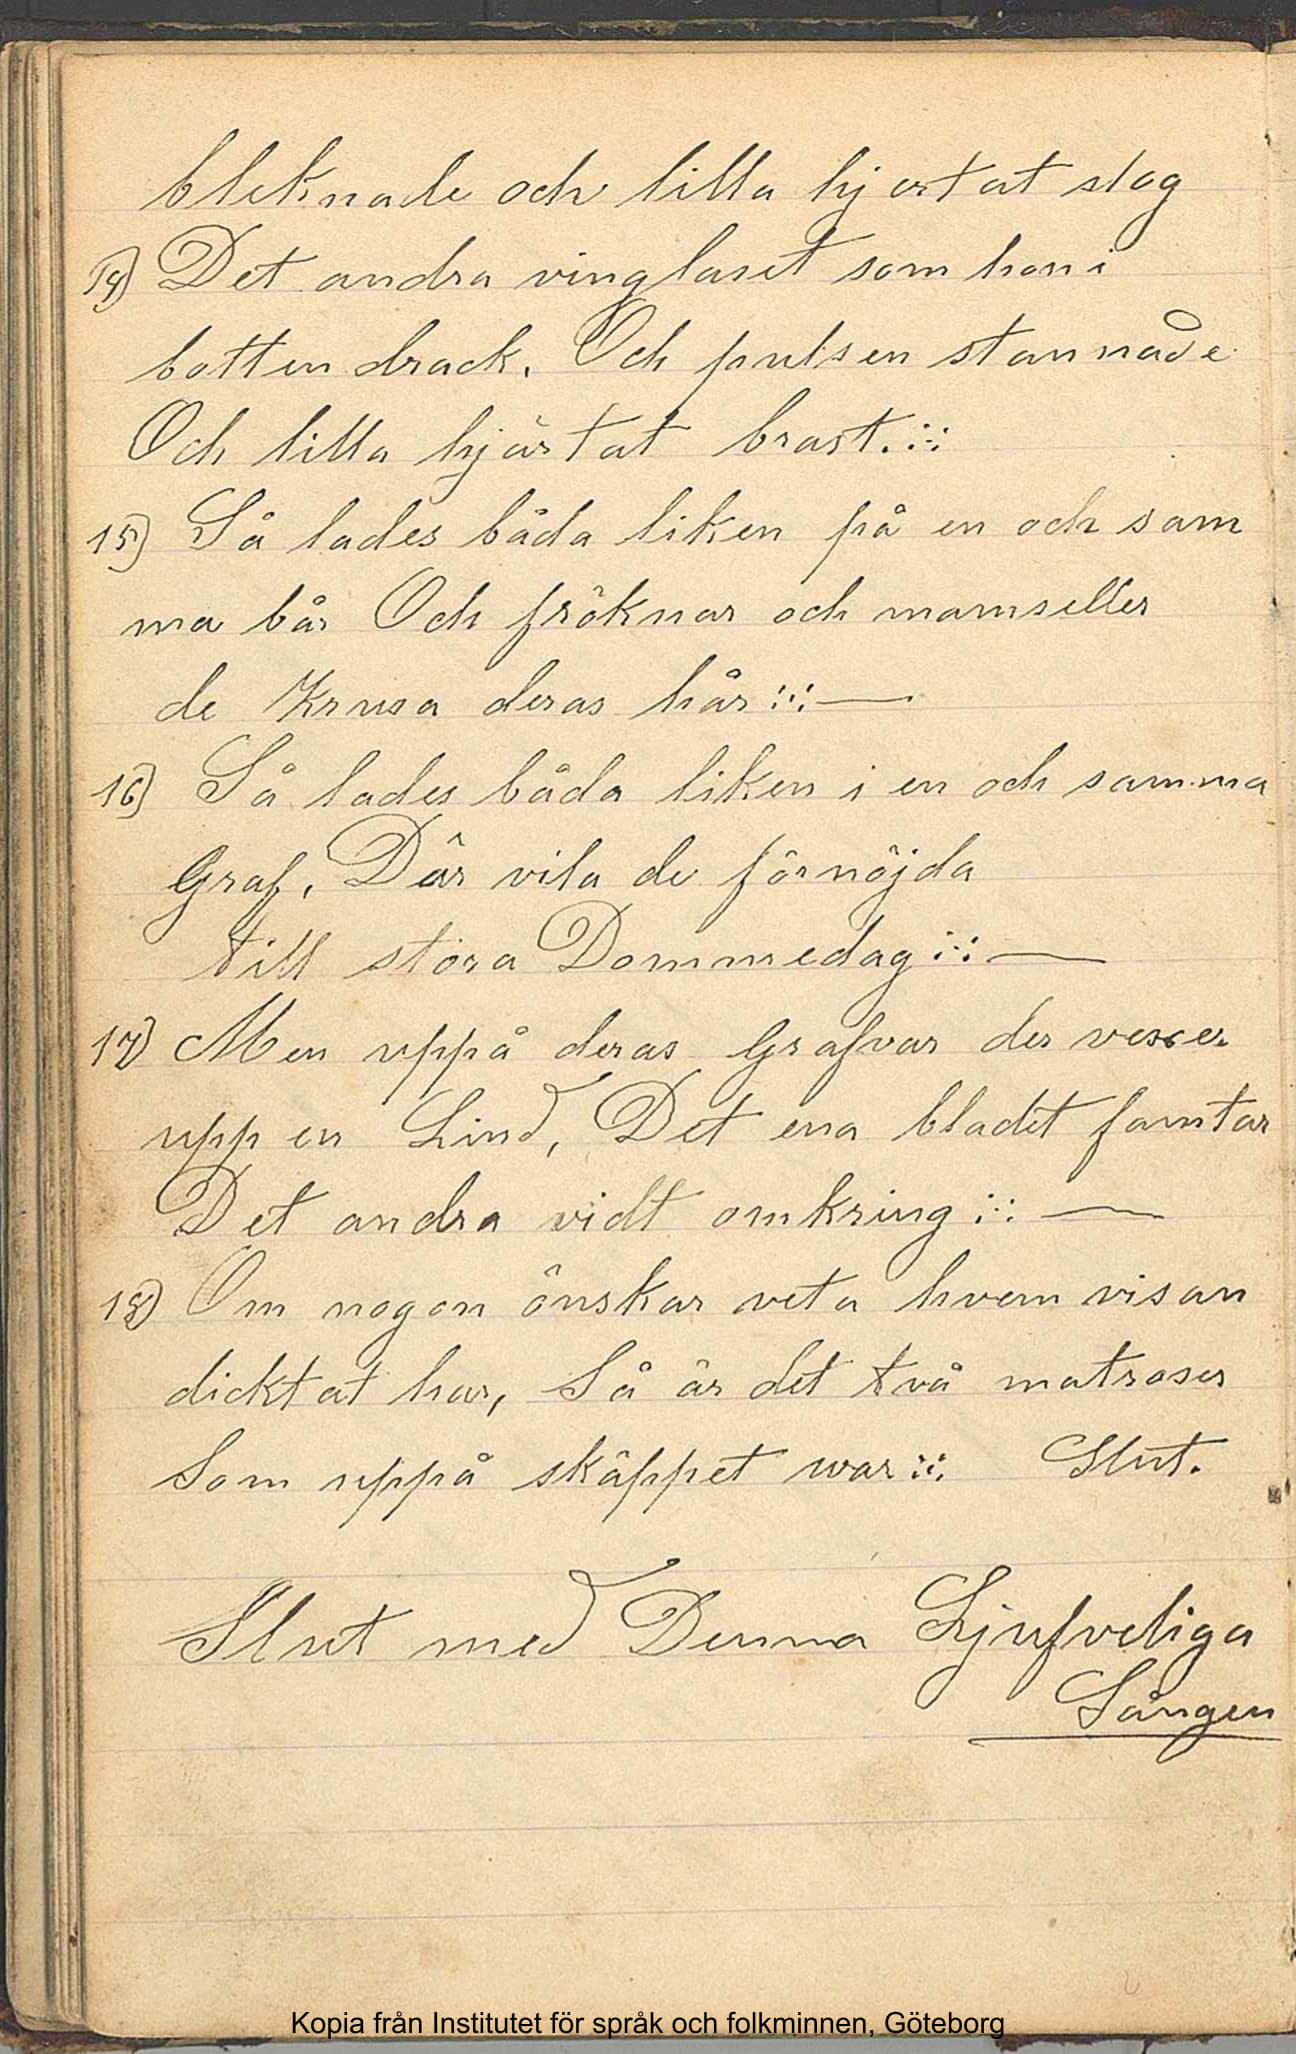 bleknade och lilla hjertat slog
14) Det andra vinglaset som hon i
botten drack. Och pulsen stannade
Och lilla hjärtat brast.:::
15) Så lades båda liken på en och sam
ma bår Och fröknar och mamseller
de Krusa deras hår ::: —
16) Så lades båda liken i en och samma
Graf, Där vila de förnöjda
till stora Dommedag ::: —
17) Men uppå deras Grafvar der vexer
upp en Lind, Det ena bladet famtar
Det andra vidt omkring ::: —
18) Om nogon önskar veta hvem visan
dicktat har, Så är det två matroser
Som uppå skäppet war ::: Slut.
Slut med Denna Ljufveliga
Sången
Kopia från Institutet för språk och folkminnen, Göteborg